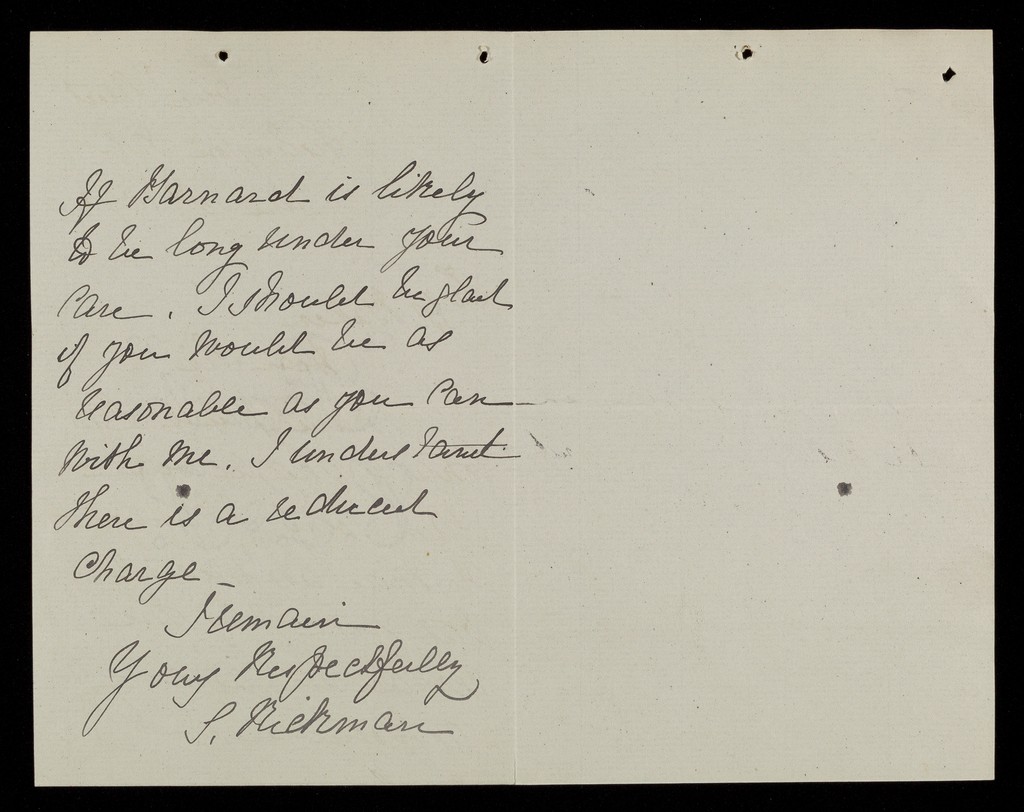 If Barnard is likely
to be long under your
Care. I should be glad
if you would be as
reasonable as you Can
With me. I understand
there is a reduced
Charge
I remain
Yours Respectfully
S. Rickman